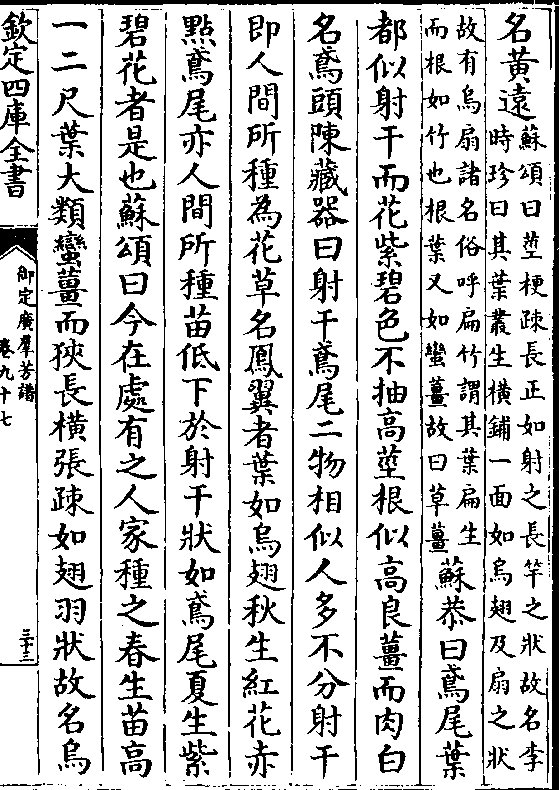 名黄遠蘇頌曰莖梗疎長正如射之長竿之狀故名李
時珍曰其葉叢生橫鋪一面如烏翅及扇之狀
故有烏扇諸名俗呼扁竹謂其葉扁生
而根如竹也根葉又如蠻薑故曰草薑蘇恭曰鳶尾葉
都似射干而花紫碧色不抽高莖根似高良薑而肉白
名鳶頭陳藏器曰射干鳶尾二物相似人多不分射干
即人間所種為花草名鳳翼者葉如烏翅秋生紅花赤
點鳶尾亦人間所種苗低下於射干狀如鳶尾夏生紫
碧花者是也蘇頌曰今在處有之人家種之春生苗高
一二尺葉大類蠻薑而狹長橫張疎如翅羽狀故名烏
欽定四庫全書
御定廣羣芳譜
卷九十七
三十三